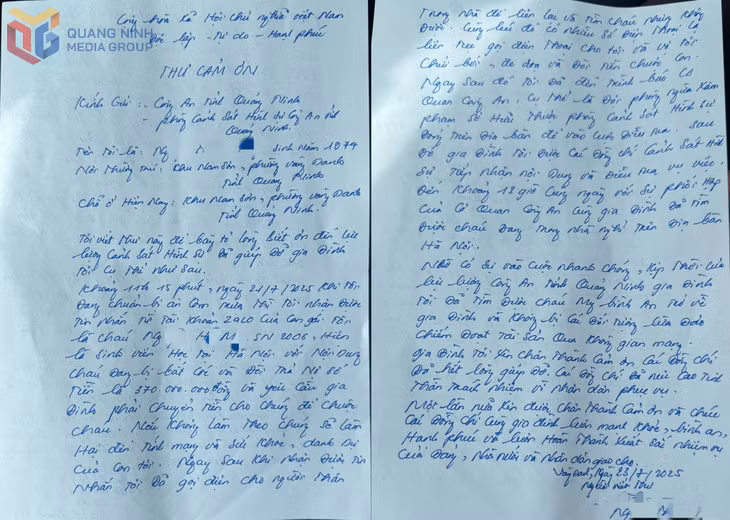 QUANG NINH
MEDIA GROUP
Cộng hòa xã Hội chủ nghĩa việt Nam
Độc lập - Tự do - Hạnh phúc
THƯ CẢM ƠN
Kính Gửi: - Công An Tỉnh Quảng Ninh
- phòng Cảnh Sát Hình sự Công An Tỉnh
Quảng Ninh.
Tên Tôi là: Ng sinh năm 1974
Nơi Thường trú: khu Nam Sơn, phường vàng Danh
Tỉnh Quảng Ninh
Chỗ ở Hiện Nay: khu Nam Sơn, phường vàng Danh
Tỉnh Quảng Ninh.
Tôi viết Thư này để bày tỏ lòng biết ơn đến lực
lượng Cảnh Sát Hình Sự Đã giúp Đỡ gia Đình
Tôi Cụ Thể như sau.
Khoảng 11h 15 phút, ngày 21/7/2025 khi Tôi
Đang chuẩn bị ăn Cơm trưa Thì Tôi nhận Được
Tin nhắn Từ Tài Khoản ZALO Của Con gái Tôi
là cháu Ng SN 2006, Hiện
là sinh viên Học Tại Hà Nội với Nội Dung
cháu Đang bị bắt Cóc và Đòi Trả Nợ số
Tiền là 370.000.000 đồng và yêu Cầu gia
Đình phải chuyển Tiền cho Chúng để Chuộc
cháu. Nếu Không làm Theo Chúng Sẽ làm
Hại đến Tính mạng và Sức Khỏe, danh Dự
Của Con tôi. Ngay Sau Khi nhận Được Tin
Nhắn Tôi Đã gọi điện cho người Thân
Trong Nhà để liên lạc và Tìm cháu Nhưng Không
Được. Cùng lúc đó có nhiều Số Điện Thoại lạ
liên Tục gọi điện Thoại Cho Tôi và vợ Tôi
Chửi bới, đe dọa và Đòi Tiền chuộc Con.
Ngay Sau đó Tôi Đã đến Trình báo Cơ
Quan Công An, Cụ Thể là Đội phòng ngừa Xâm
phạm Sở Hữu Thuộc phòng Cảnh Sát Hình Sự
Đóng Trên Địa bàn để vào Cuộc Điều Tra. Sau
Đó gia Đình Tôi Được Các Đồng chí Cảnh Sát Hình
Sự Tiếp Nhận nội Dung và Điều tra vụ việc.
Đến Khoảng 18 giờ Cùng ngày với Sự phối Hợp
Của Cơ Quan Công An Cùng gia Đình Đã Tìm
Được cháu Đang Trong nhà nghỉ Trên Địa bàn
Hà Nội.
Nhờ Có Sự vào Cuộc Nhanh chóng, Kịp Thời Của
lực lượng Công An Tỉnh Quảng Ninh gia Đình
Tôi Đã Tìm Được cháu bình An Trở về
gia Đình và Không bị Các Đối tượng lừa Đảo
Chiếm Đoạt Tài Sản Qua Không gian mạng.
gia Đình Tôi Chân Thành Cảm ơn Các Đồng Chí
Đã hết lòng giúp Đỡ Các Đồng Chí Đã nêu Cao Tinh
Thần Trách Nhiệm vì nhân dân phục vụ.
Một lần nữa Xin được Chân Thành Cảm ơn và chúc
Các Đồng Chí Cùng gia đình luôn mạnh Khỏe, bình an,
Hạnh phúc và luôn Hoàn Thành Xuất Sắc nhiệm vụ
Của Đảng, Nhà Nước và Nhân dân giao cho.
Ngày 23/7/2025
Người viết Thư
Ng